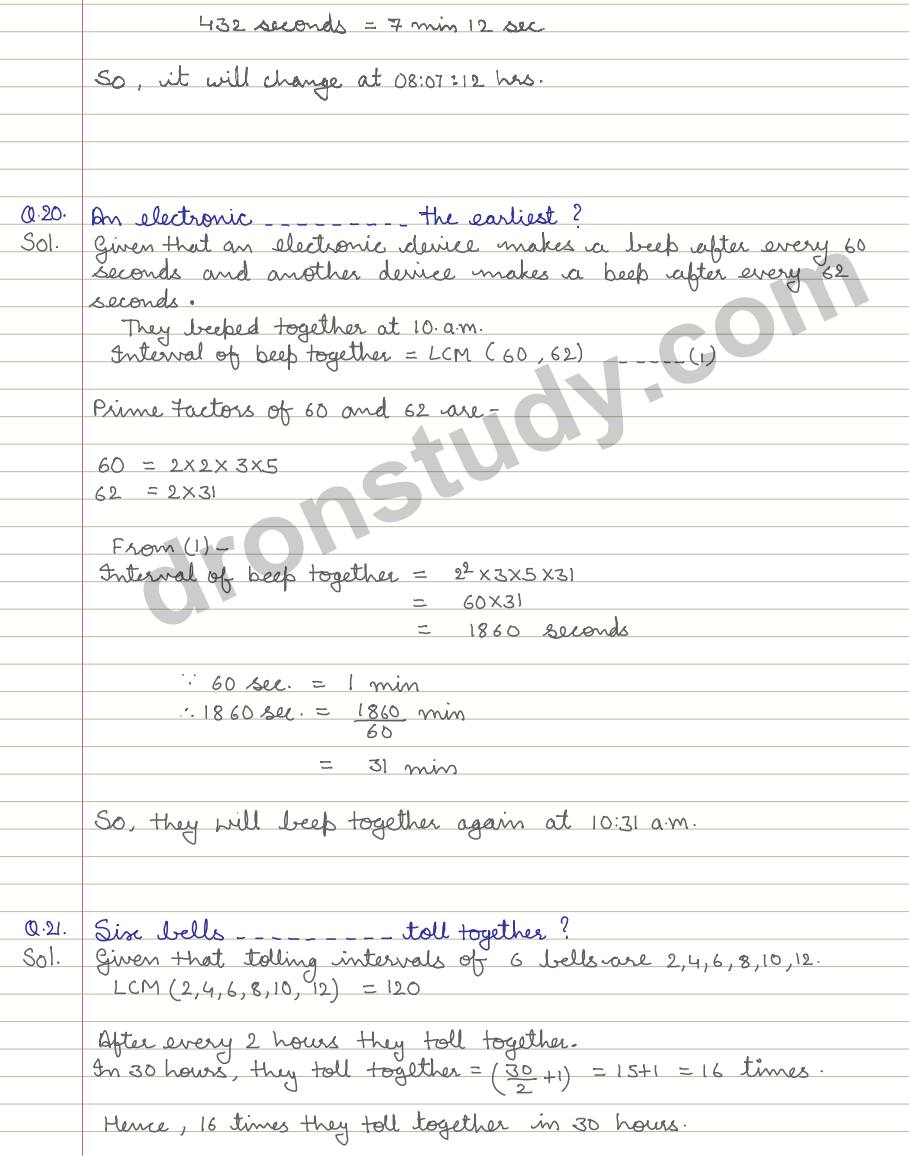 432 seconds = 7 min 12 sec
So, it will change at 08:07:12 hrs.
Q.20. An electronic _________ the earliest ?
Sol. Given that an electronic device makes a beep after every 60
seconds and another device makes a beep after every 62
seconds.
They beeped together at 10.a.m.
Interval of beep together = LCM (60, 62) _____(1)
Prime factors of 60 and 62 are -
60 = 2×2×3×5
62 = 2×31
From (1) -
Interval of beep together = 2²×3×5×31
= 60×31
= 1860 seconds
∵ 60 sec. = 1 min
∴ 1860 sec. = 1860/60 min
= 31 min
So, they will beep together again at 10:31 a.m.
Q.21. Six bells _________ toll together ?
Sol. Given that tolling intervals of 6 bells are 2,4,6,8,10,12.
LCM (2,4,6,8,10,12) = 120
After every 2 hours they toll together.
In 30 hours, they toll together = (30/2 +1) = 15+1 = 16 times.
Hence, 16 times they toll together in 30 hours.
dronstudy.com